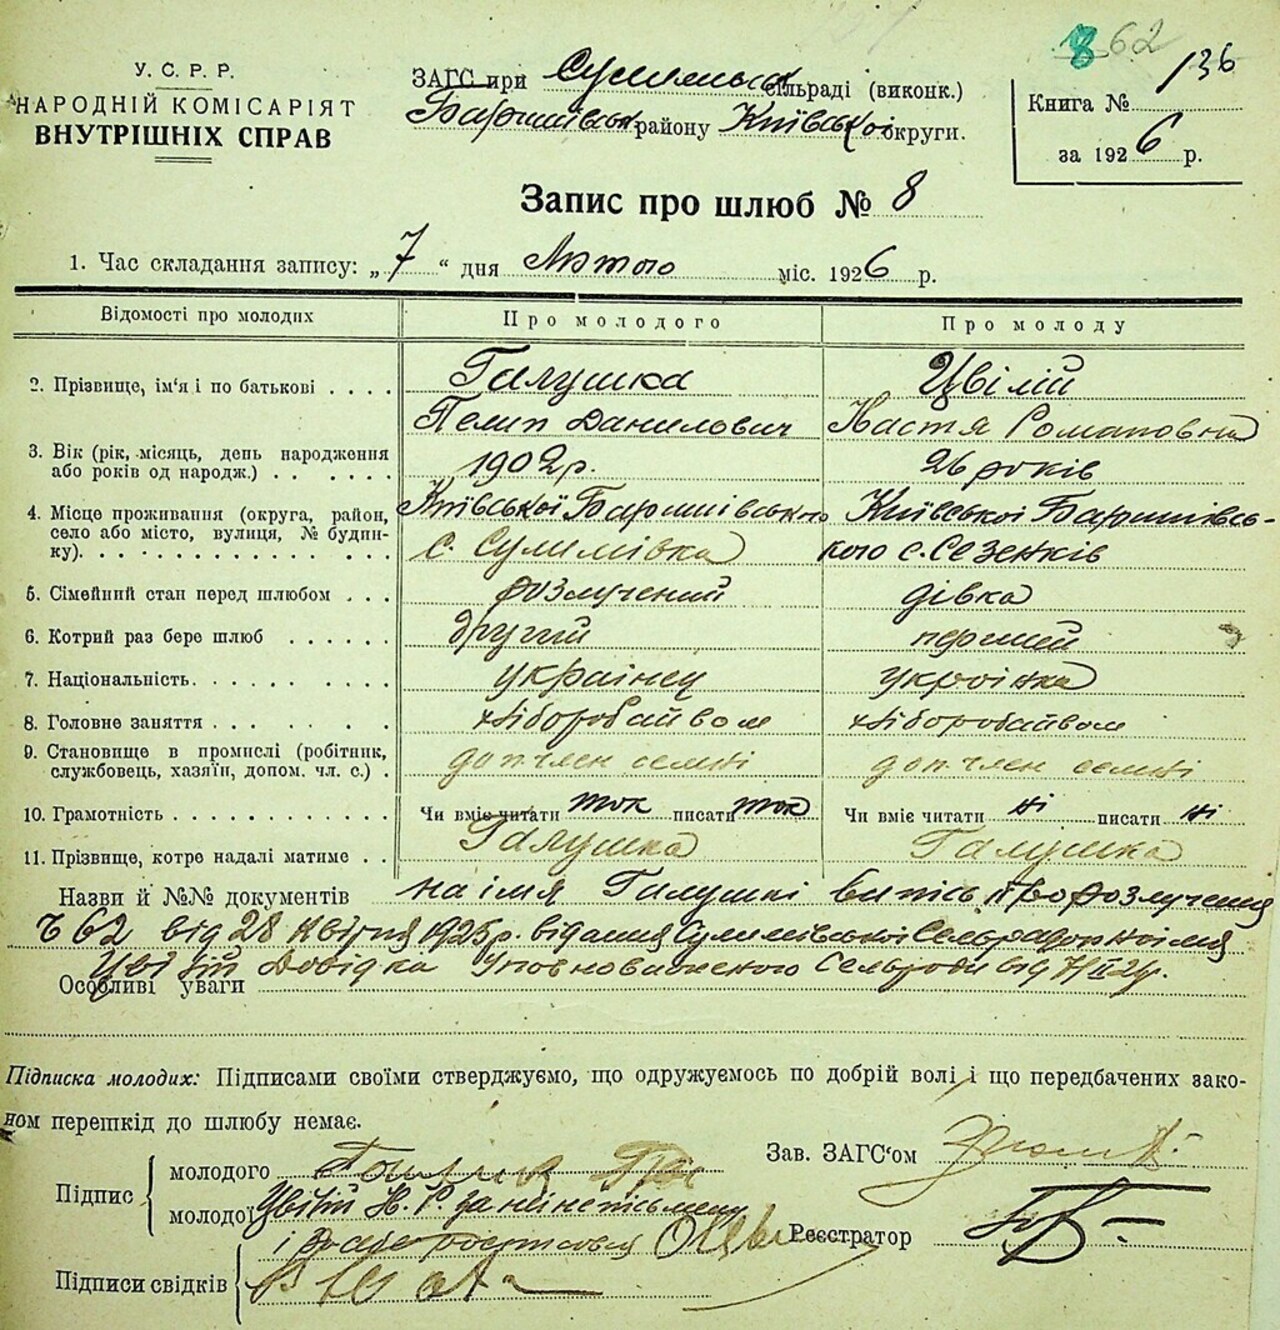 8 62
У. С. Р. Р.
НАРОДНІЙ КОМІСАРІЯТ
ВНУТРІШНІХ СПРАВ
ЗАГС при Сулимівськ сільраді (виконк.)
Баришівськ району Київської округи.
Книга № 136
за 1926 р.
Запис про шлюб № 8
1. Час складання запису: „7“ дня Лютого міс. 1926 р.
Відомості про молодих Про молодого Про молоду
2. Прізвище, ім'я і по батькові . . . . Галушка Цвілій
Пелип Данилович Настя Романовна
3. Вік (рік, місяць, день народження або років од народж.) . . . . . . 1902 р. 26 років
4. Місце проживання (округа, район, Київської Баришівського Київської Баришівсь-
село або місто, вулиця, № будин- с. Сулимівка кого с. Сезенків
ку). . . . . . . . . . . . . . .
5. Сімейний стан перед шлюбом . . . розлучений дівка
6. Котрий раз бере шлюб . . . . . . другий перший
7. Національність. . . . . . . . . . українец українка
8. Головне заняття . . . . . . . хліборобайвом хліборобайвом
9. Становище в промислі (робітник, службовець, хазяїн, допом. чл. с.) . доп член семні доп. член семні
10. Грамотність . . . . . . . . . . . Чи вміє читати так писати так Чи вміє читати ні писати ні
11. Прізвище, котре надалі матиме . . Галушка Галушка
Назви й №№ документів на імя Галушкі випись про розлучення
Ч 62 від 28 Квітня 1925 р. відання Сулимівської Сельради на імя
Цвілій Довідка Сельради від 7/II 26р.
Особливі уваги
Підписка молодих: Підписами своїми стверджуємо, що одружуємось по добрій волі і що передбачених зако-
ном перешкід до шлюбу немає.
Підпис молодого
молодої Цвілій Н. Р. за ні нетісьмену
і росте
Підписи свідків
Зав. ЗАГС'ом
Реєстратор